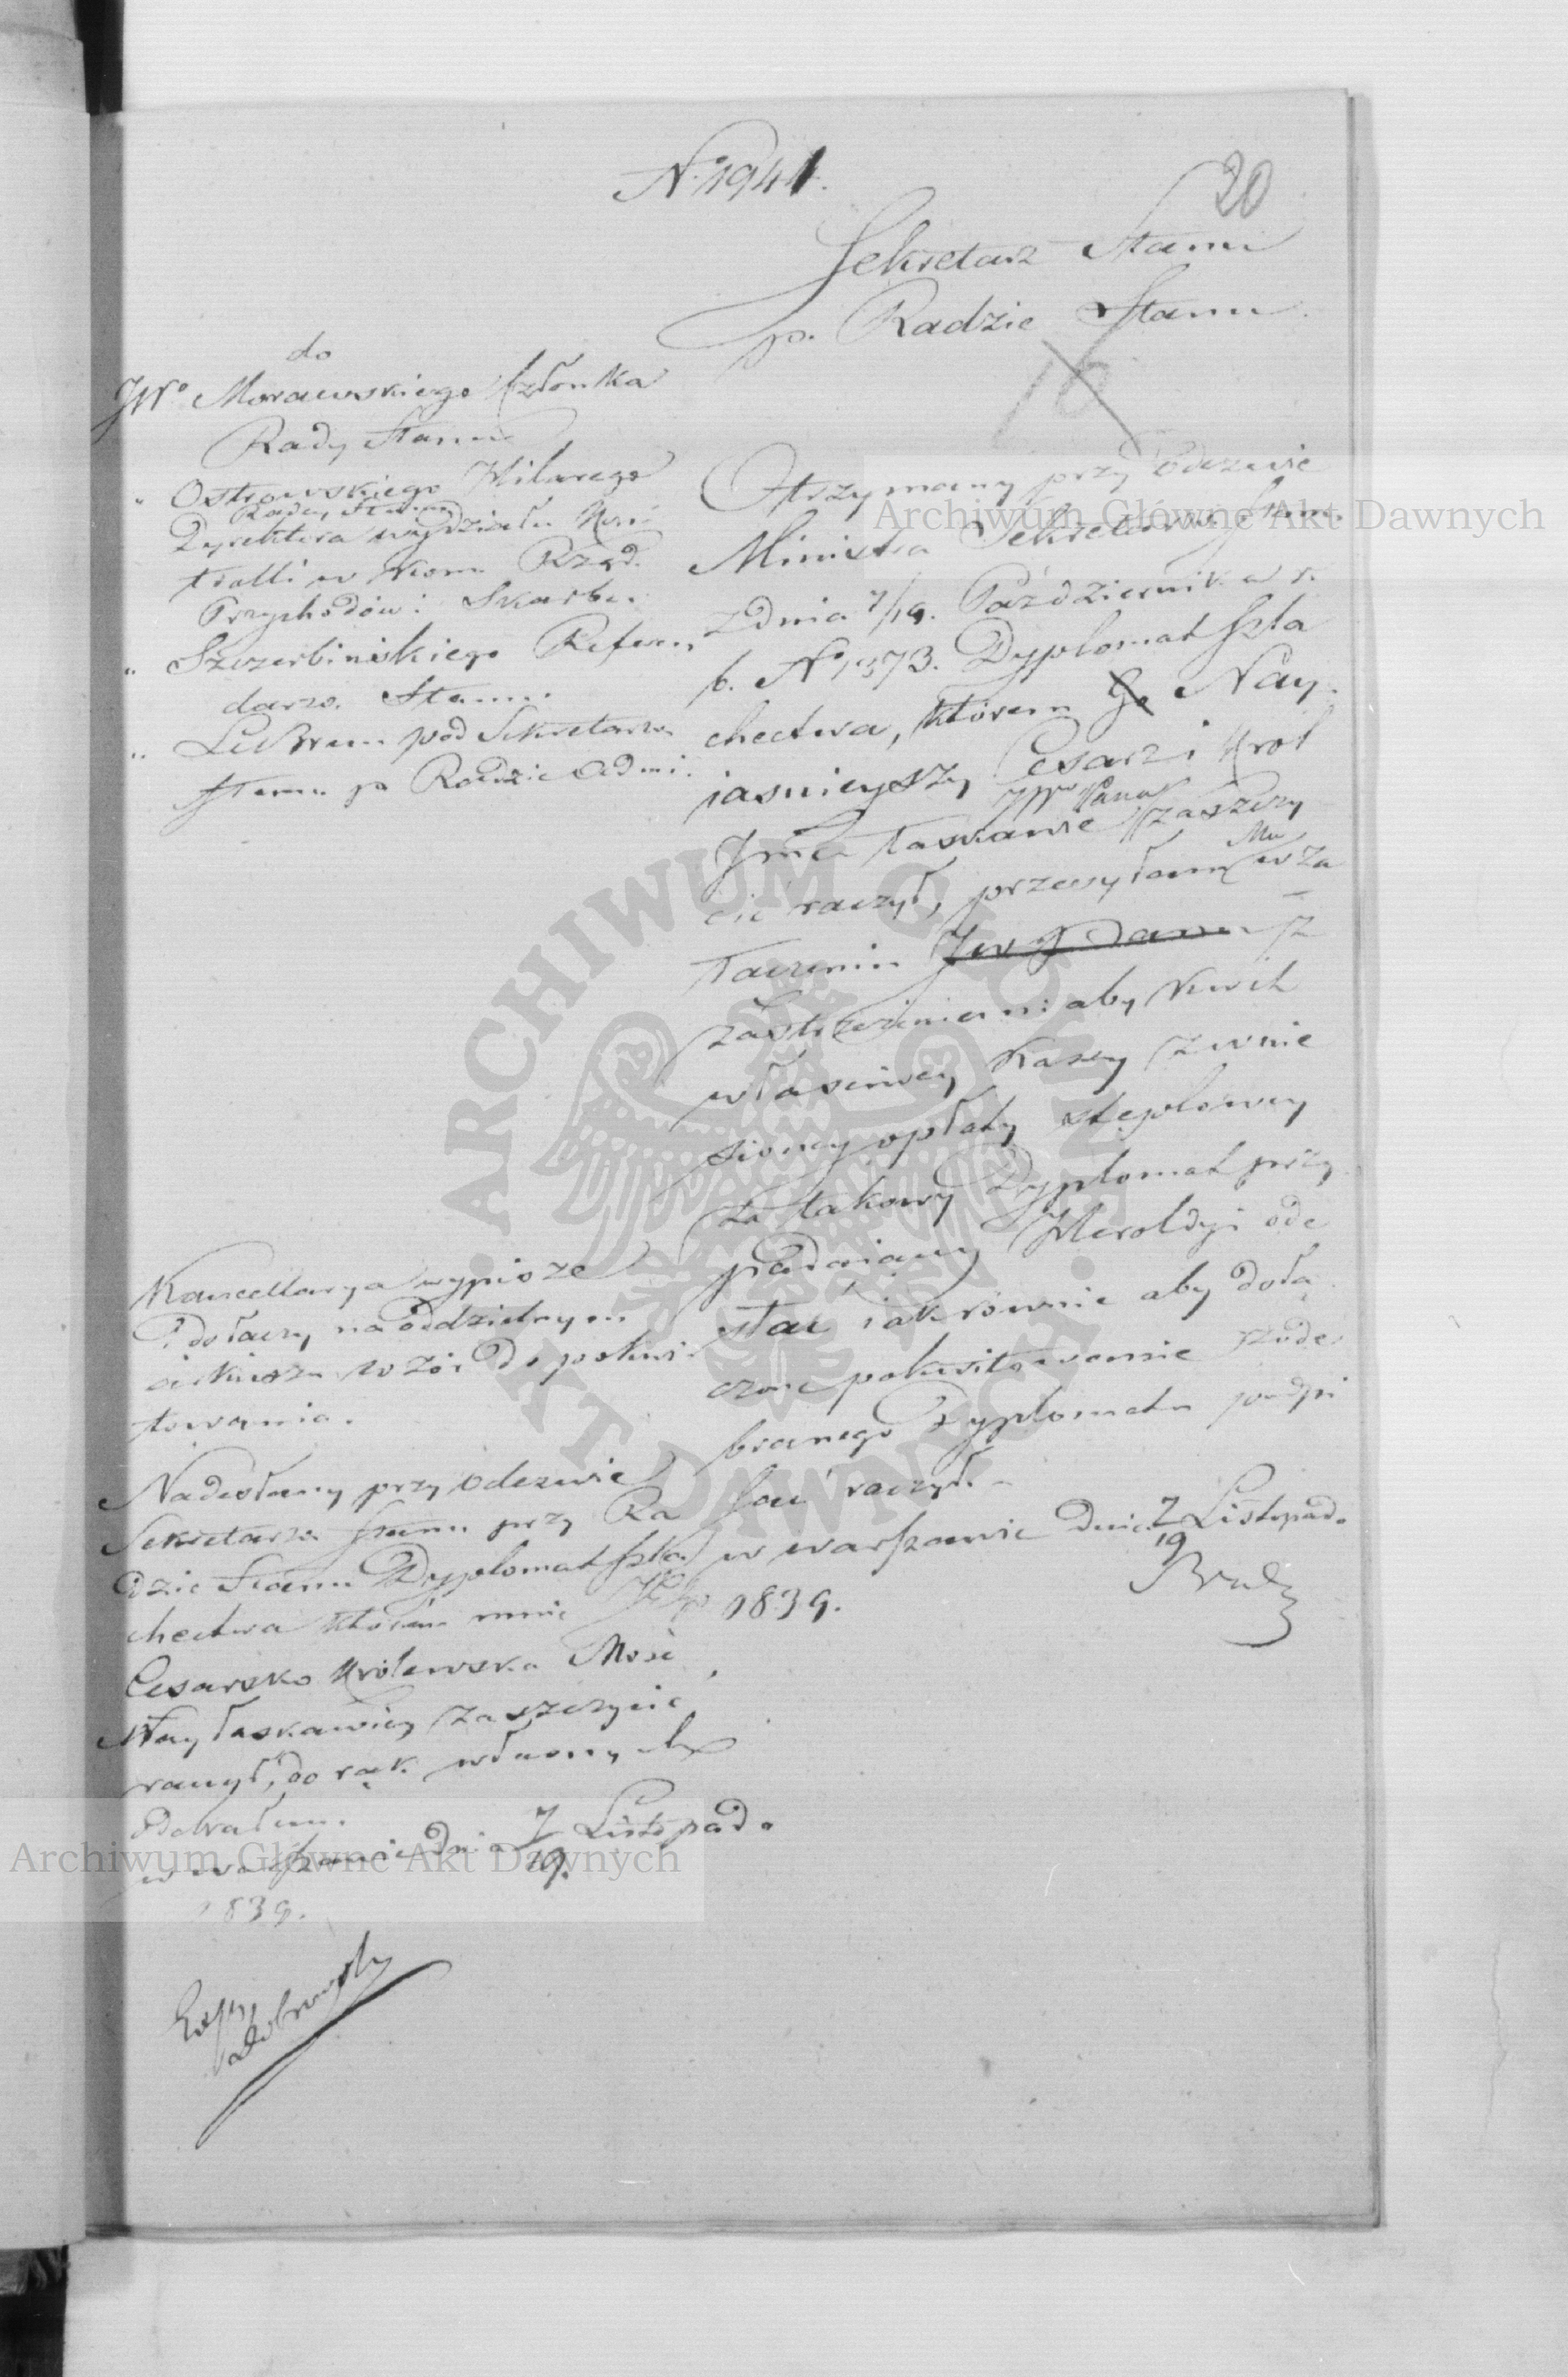 N. 1941.
20
Sekretarz Stanu
p. Radzie Stanu.
16
do
JWo Morawskiego Członka
Rady Stanu
" Ostrowskiego Hilarego
Rady Stanu
Dyrektora wydziału Kon
trolli w Kom. Rząd.
Przychodów i Skarbu.
" Szczerbińskiego Referen
darza Stanu.
" LeBrun pod Sekretarza
Stanu p Radzie Admi.
Otrzymany przy odezwie
Ministra Sekretarza Stanu
z dnia 7/19. Października r.
b. No 1373. Dyplomat szla
chectwa, którem Go Nay
jasnieyszy Cesarz i Król
JWo Pana
Jmć łaskawie zaszczy
Mu
cić raczył, przesyłam w za
łączeniu JW Panu z
zastrzeżeniem aby kwit
właściwey Kassy z wnie
sioney opłaty stęplowey
za takowy Dyplomat przy
padaiącey Heroldyi ode
słać iak równie aby dołą
czone pokwitowanie z ode
branego Dyplomatu podpi
sać raczył.
w Warszawie dnia 7/19 Listopada
1839.
Kancellarya wypisze
i dołączy na oddzielnym
arkuszu wzór do pokwi
towania.
Nadesłany przy odezwie
Sekretarza Stanu przy Ra
dzie Stanu Dyplomat szla
chectwa którem mnie
Cesarsko Królewska Mość
Nayłaskawiey zaszczycić
raczył, do rąk własnych
odebrałem.
w Warszawie dnia 7/19. Listopada
1839.